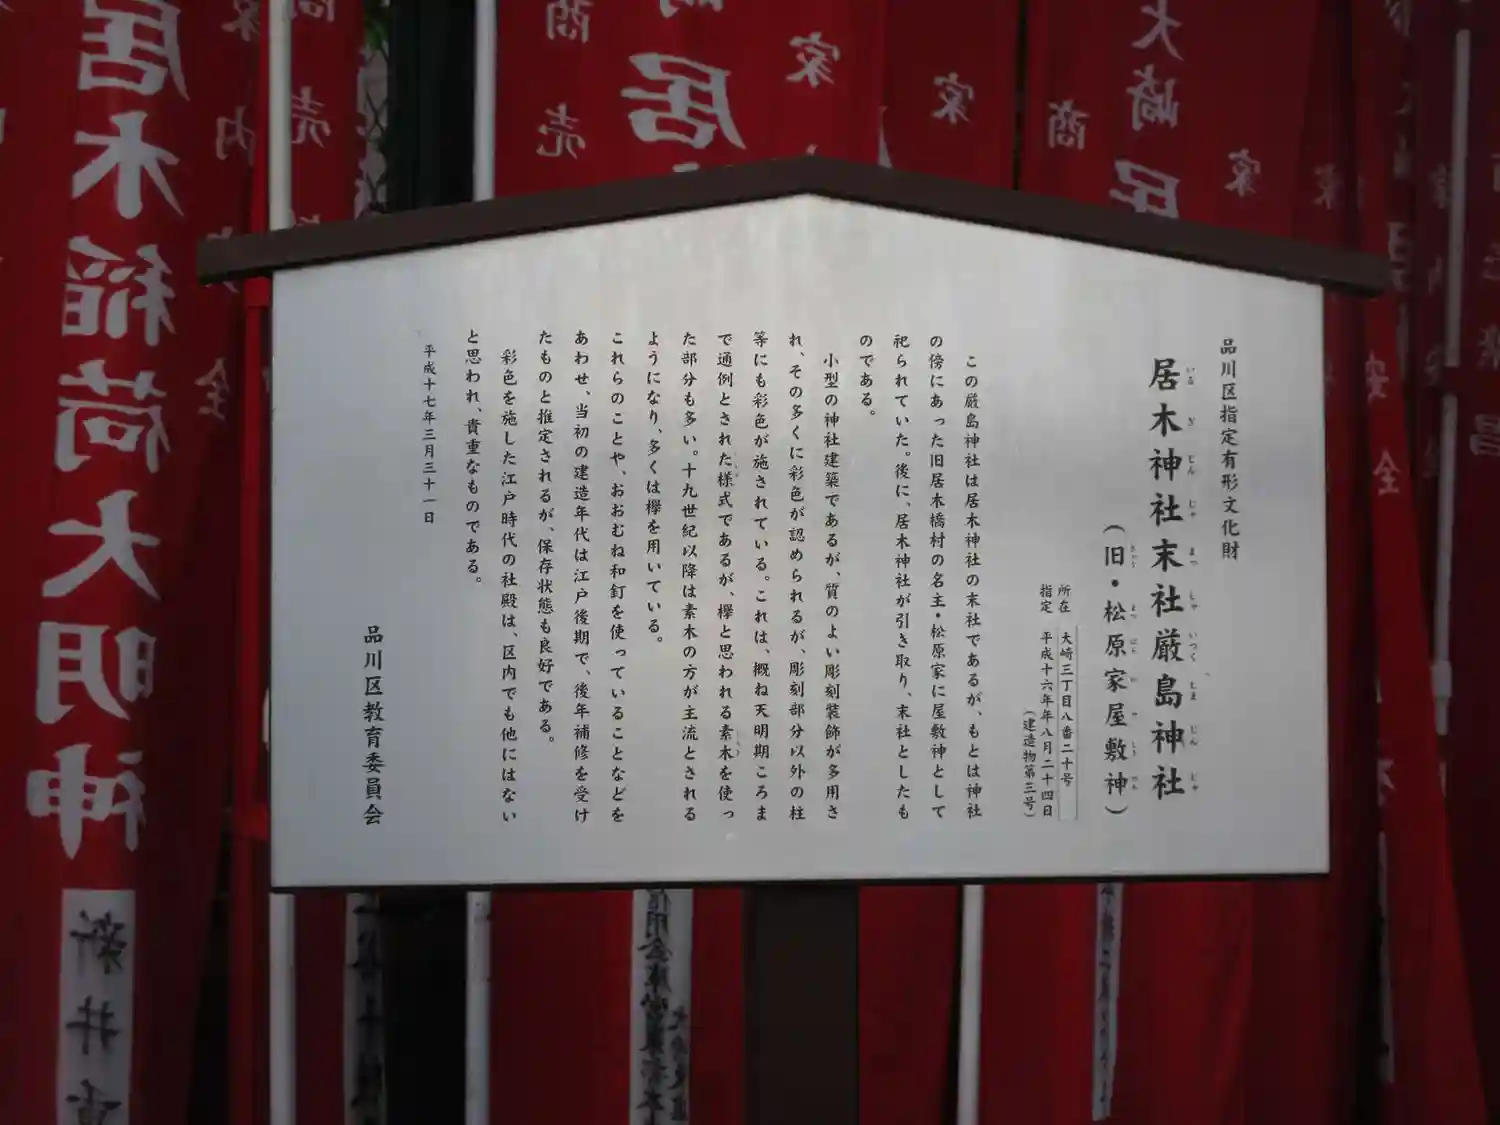 品川区指定有形文化財
居木神社末社厳島神社
いるぎじんじゃまつしゃいつくしまじんじゃ
(旧・松原家屋敷神)
所在 大崎三丁目八番二十号
指定 平成十六年年八月二十四日
(建造物第三号)
この厳島神社は居木神社の末社であるが、もとは神社
の傍にあった旧居木橋村の名主・松原家に屋敷神として
祀られていた。後に、居木神社が引き取り、末社としたも
のである。
小型の神社建築であるが、質のよい彫刻装飾が多用さ
れ、その多くに彩色が認められるが、彫刻部分以外の柱
等にも彩色が施されている。これは、概ね天明期ころま
で通例とされた様式であるが、欅と思われる素木を使っ
た部分も多い。十九世紀以降は素木の方が主流とされる
ようになり、多くは欅を用いている。
これらのことや、おおむね和釘を使っていることなどを
あわせ、当初の建造年代は江戸後期で、後年補修を受け
たものと推定されるが、保存状態も良好である。
彩色を施した江戸時代の社殿は、区内でも他にはない
と思われ、貴重なものである。
平成十七年三月三十一日
品川区教育委員会
大崎 居
商 売
家
家
商 売
居
家 内 安 全
居木稲荷大明神
新井